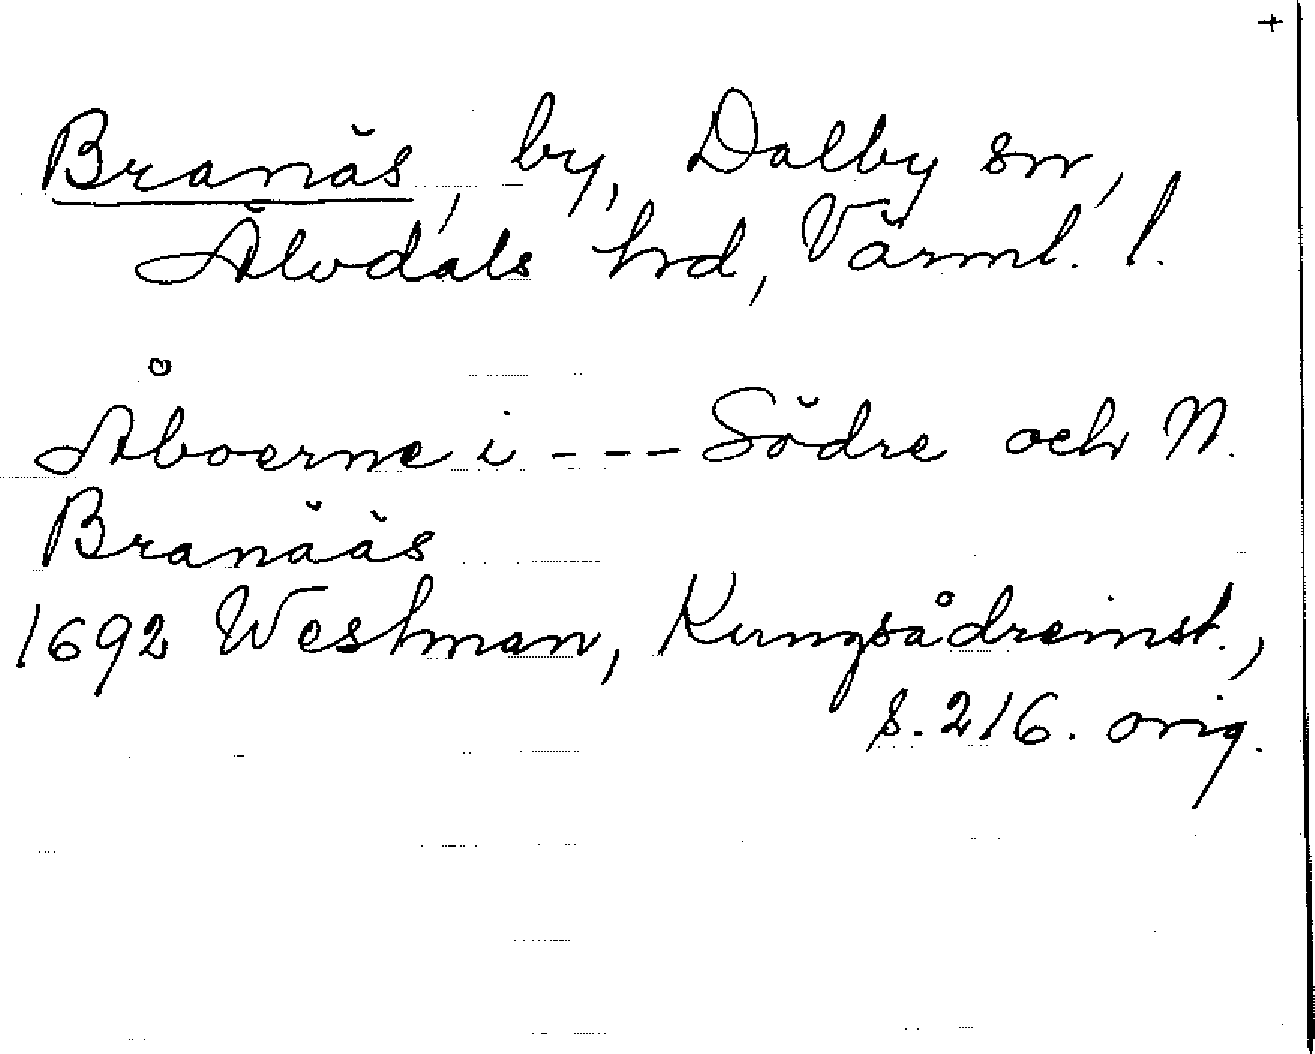 +
Branäs, by, Dalby sn,
Älvdals hrd, Värml. l.
Åboerne i --- Södre och N.
Branääs
1692 Westman, Kungsådreinst.,
s. 216. orig.